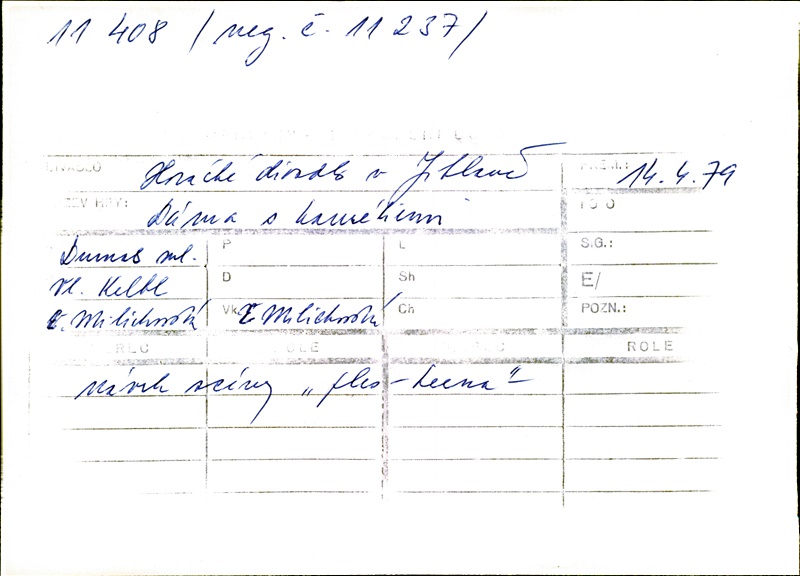 11 408 / neg. č. 11 237/
DIVADLO Horácké divadlo v Jihlavě PREM.: 14.4.79
NÁZEV HRY: Dáma s kaméliemi FOTO
Dumas ml. P L S.G.:
Vl. Kelbl D Sh E/
E. Milichovská Vk E Milichovská Ch POZN.:
ROLE ROLE ROLE
návrh scény „ples-herna"